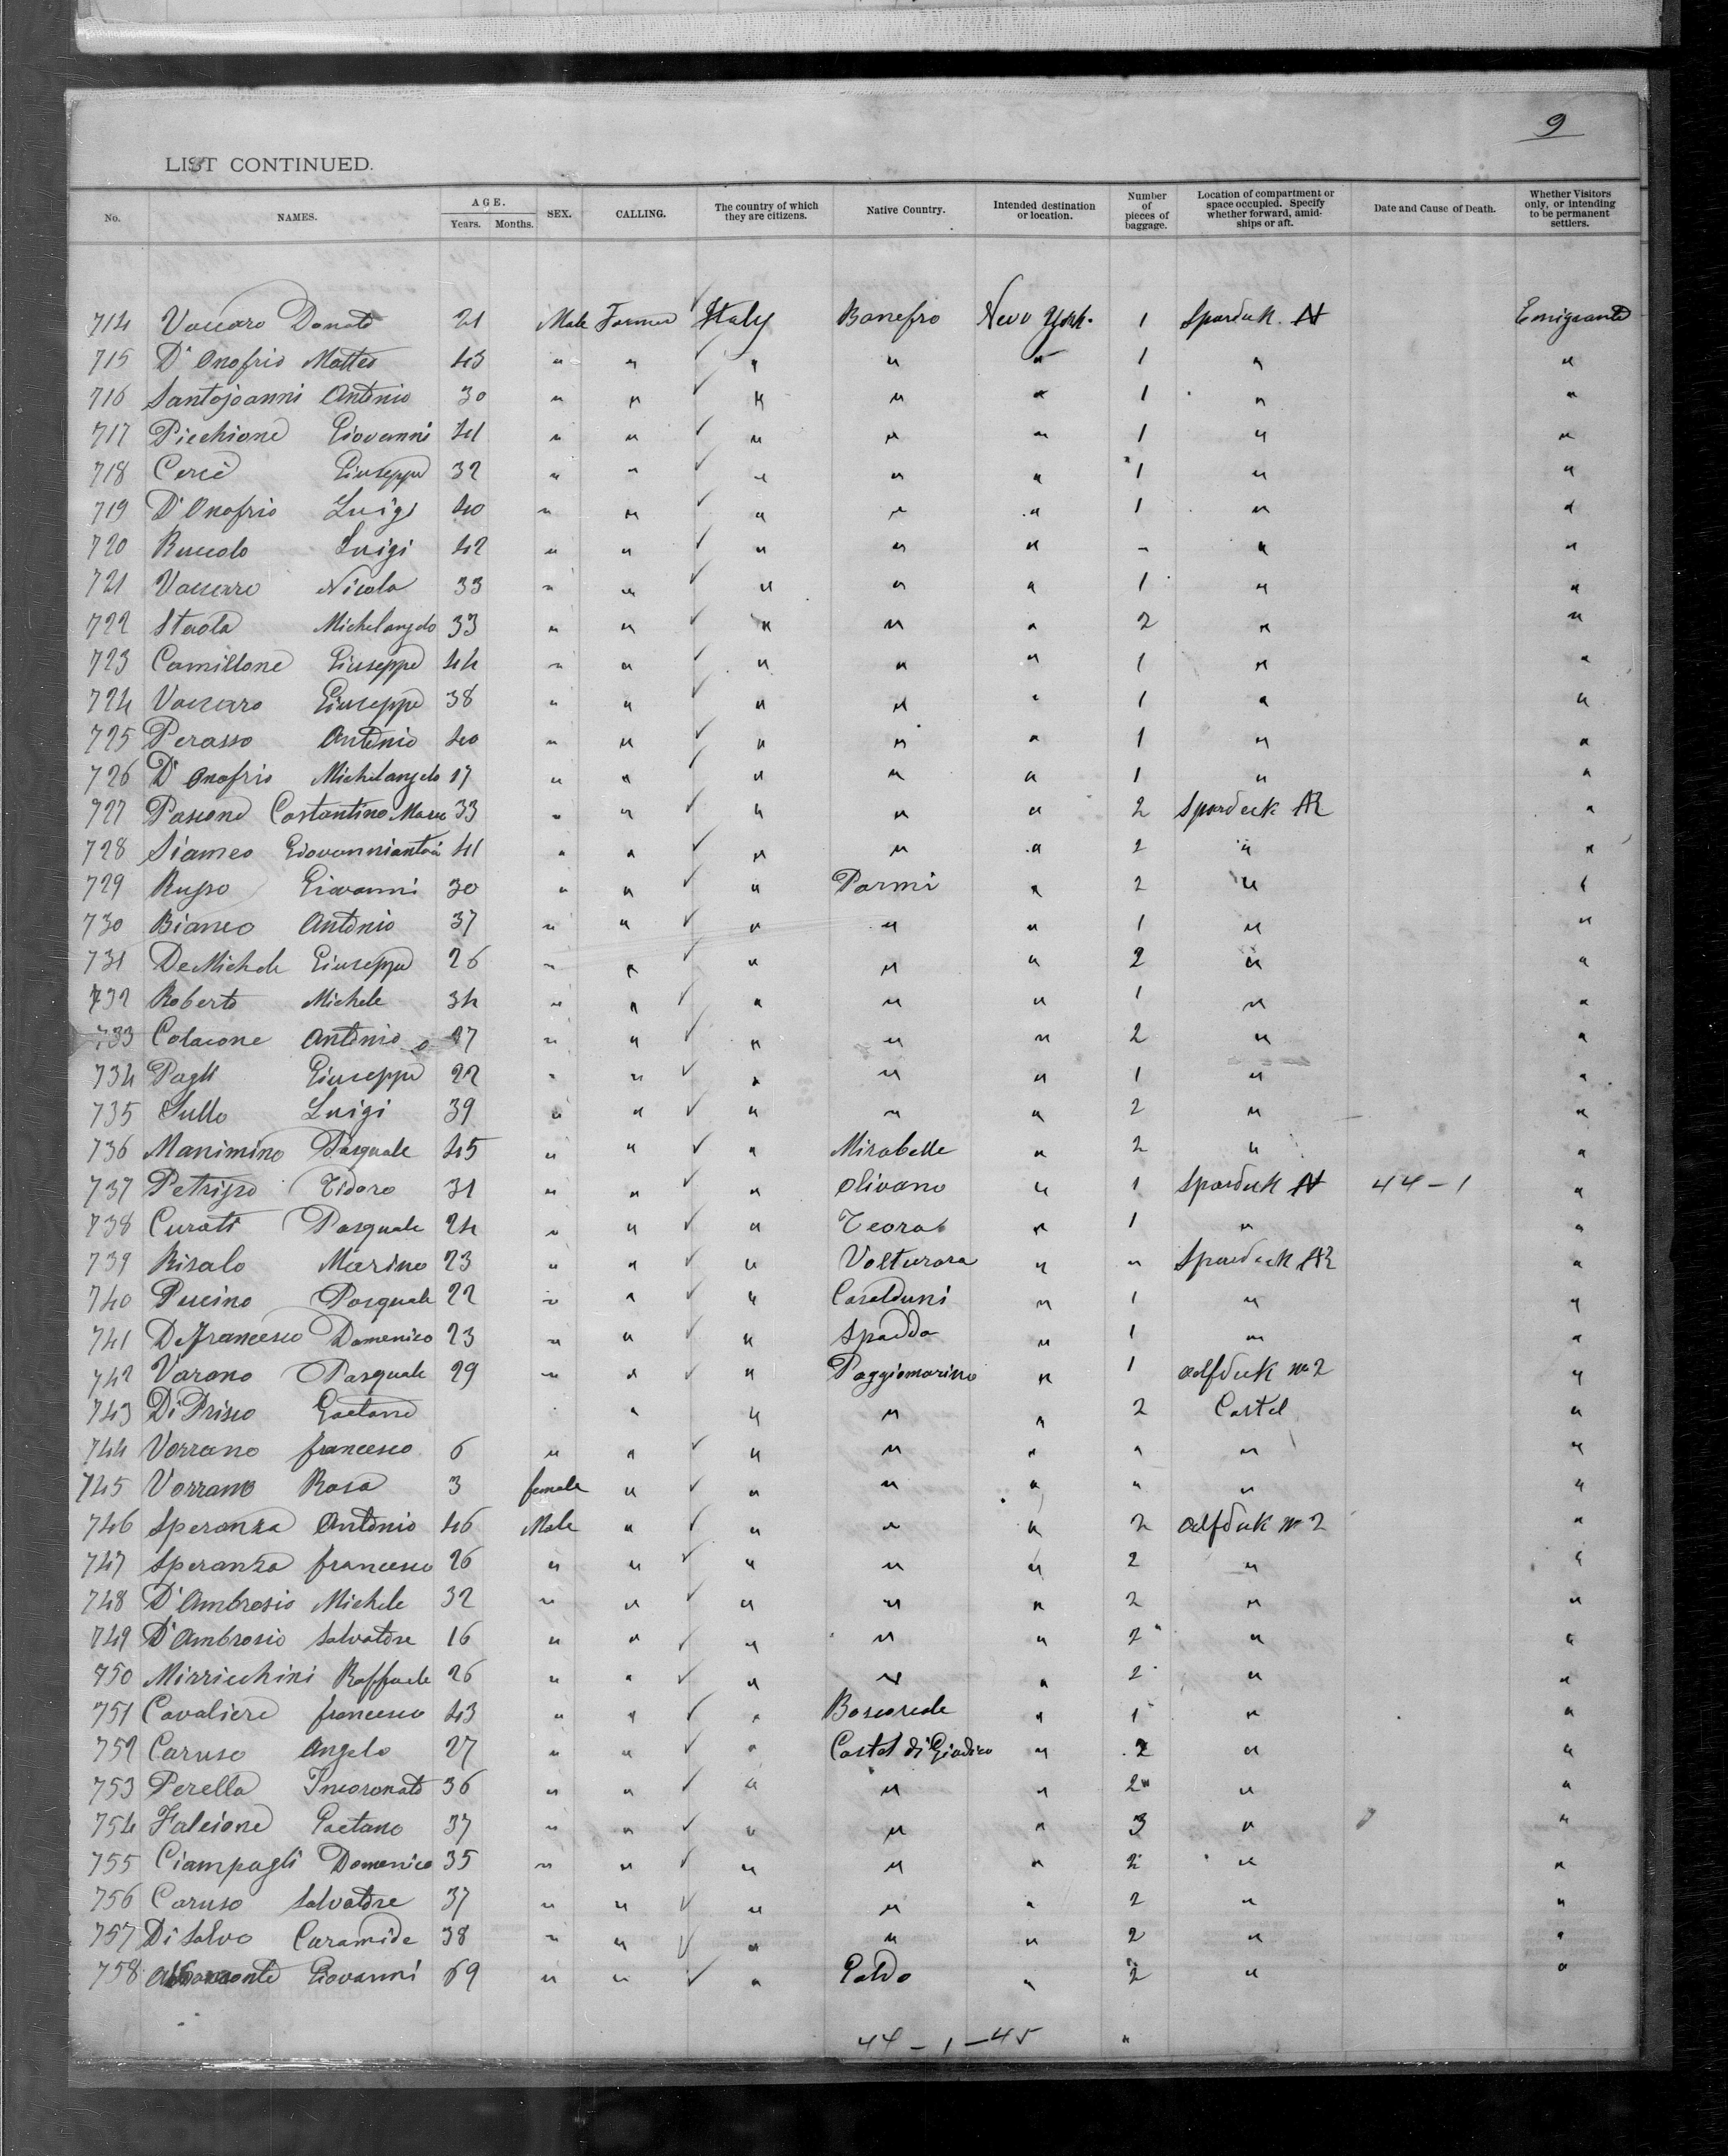 9
LIST CONTINUED.
No. NAMES. AGE. Years. Months. SEX. CALLING. The country of which they are citizens. Native Country. Intended destination or location. Number of pieces of baggage. Location of compartment or space occupied. Specify whether forward, amidships or aft. Date and Cause of Death. Whether Visitors only, or intending to be permanent settlers.
714 Vaccaro Donato 21 Male Farmer ✓ Italy Bonefro New York. 1 Spardeck Emigrante
715 D'Onofrio Matteo 43 " " ✓ " " " 1 " "
716 Santojoanni Antonio 30 " " ✓ " " " 1 " "
717 Picchione Giovanni 41 " " ✓ " " " 1 " "
718 Cercè Giuseppe 32 " " ✓ " " " 1 " "
719 D'Onofrio Luigi 40 " " ✓ " " " 1 " "
720 Buccolo Luigi 42 " " ✓ " " " " " "
721 Vaccaro Nicola 33 " " ✓ " " " 1 " "
722 Staola Michelangelo 33 " " ✓ " " " 2 " "
723 Camillone Giuseppe 44 " " ✓ " " " 1 " "
724 Vaccaro Giuseppe 38 " " ✓ " " " 1 " "
725 Perasso Antonio 40 " " ✓ " " " 1 " "
726 D'Onofrio Michelangelo 17 " " ✓ " " " 1 " "
727 Pascone Costantino Marco 33 " " ✓ " " " 2 Spardeck "
728 Siameo 41 " " ✓ " " " 2 " "
729 Russo Giovanni 30 " " ✓ " Parmi " 2 " "
730 Bianco Antonio 37 " " ✓ " " " 1 " "
731 DeMichele Giuseppe 26 " " ✓ " " " 2 " "
732 Roberto Michele 34 " " ✓ " " " 1 " "
733 Colacone Antonio 27 " " ✓ " " " 2 " "
734 Pagli Giuseppe 22 " " ✓ " " " 1 " "
735 Sullo Luigi 39 " " ✓ " " " 2 " "
736 Manimino Pasquale 45 " " ✓ " Mirabelle " 2 " "
737 Petrisso Isidoro 31 " " ✓ " Olivano " 1 Spardeck 44-1 "
738 Curati Pasquale 24 " " ✓ " Teora " 1 " "
739 Risalo Marino 23 " " ✓ " Volturara " " Spardeck "
740 Puccino Pasquale 22 " " ✓ " Casalduni " 1 " "
741 Defrancesco Domenico 23 " " ✓ " Spadda " 1 " "
742 Varano Pasquale 29 " " ✓ " Poggiomarino " 1 N° 2 "
743 DiPrisco Gaetano " " " " 2 Castel "
744 Vorrano francesco 6 " " ✓ " " " " " "
745 Vorrano Rosa 3 female " ✓ " " " " " "
746 Speranza Antonio 46 Male " ✓ " " " 2 N° 2 "
747 Speranza francesco 26 " " ✓ " " " 2 " "
748 D'Ambrosio Michele 32 " " ✓ " " " 2 " "
749 D'Ambrosio Salvatore 16 " " ✓ " " " 2 " "
750 Mirricchini Raffaele 26 " " ✓ " " " 2 " "
751 Cavaliere francesco 43 " " ✓ " Boscoreale " 1 " "
752 Caruso Angelo 27 " " ✓ " Castel di Giudice " 2 " "
753 Perella Incoronato 36 " " ✓ " " " 2 " "
754 Falcione Gaetano 37 " " ✓ " " " 3 " "
755 Ciampagli Domenico 35 " " ✓ " " " 2 " "
756 Caruso Salvatore 37 " " ✓ " " " 2 " "
757 DiSalvo Caramide 38 " " ✓ " " " 2 " "
758 Giovanni 69 " " ✓ " Galdo " 2 " "
44-1-45 "